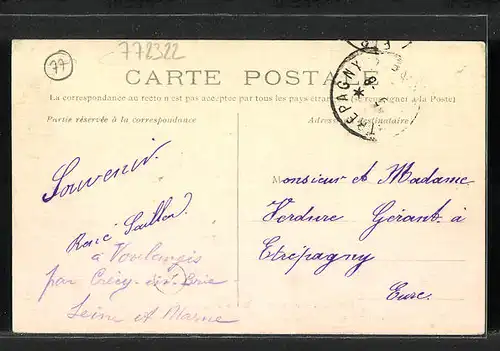 77
772322
CARTE POSTALE
La correspondance au recto n'est pas acceptée par tous les pays étrangers (Se renseigner à la Poste)
Partie réservée à la correspondance
Adresse du destinataire
TREPAGNY
Souvenir.
René
à Voulangis
par Crécy-en-Brie
Seine et Marne
Monsieur et Madame
Verdure Gérant à
Etrépagny
Eure.